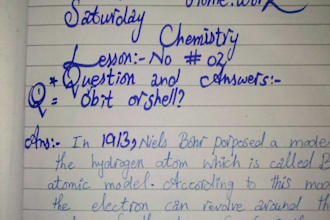 Saturday Home.Work
Chemistry
Lesson:- No # 02
* Question and Answers:-
Q = Obit or shell?
Ans:- In 1913, Niels Bohr porposed a mode
the hydrogen atom which is called B
atomic model. According to this mo
the electron can revolve around th